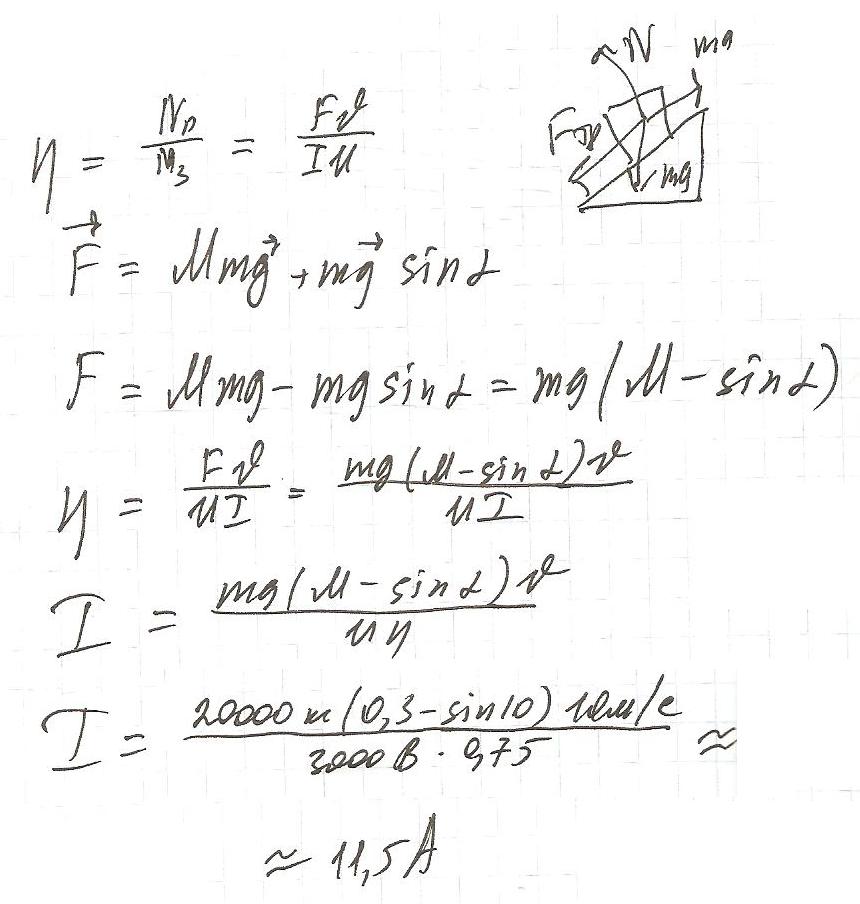 N mg
Fтр
mg
η = Nп/Nз = Fυ/IU
F⃗ = μmg⃗ + mg⃗ sinα
F = μmg - mg sinα = mg(μ - sinα)
η = Fυ/UI = mg(μ - sinα)υ/UI
I = mg(μ - sinα)υ/Uη
I = 20000 кг(0,3 - sin10) 10м/с/3000 В · 0,75 ≈
≈ 11,5 А